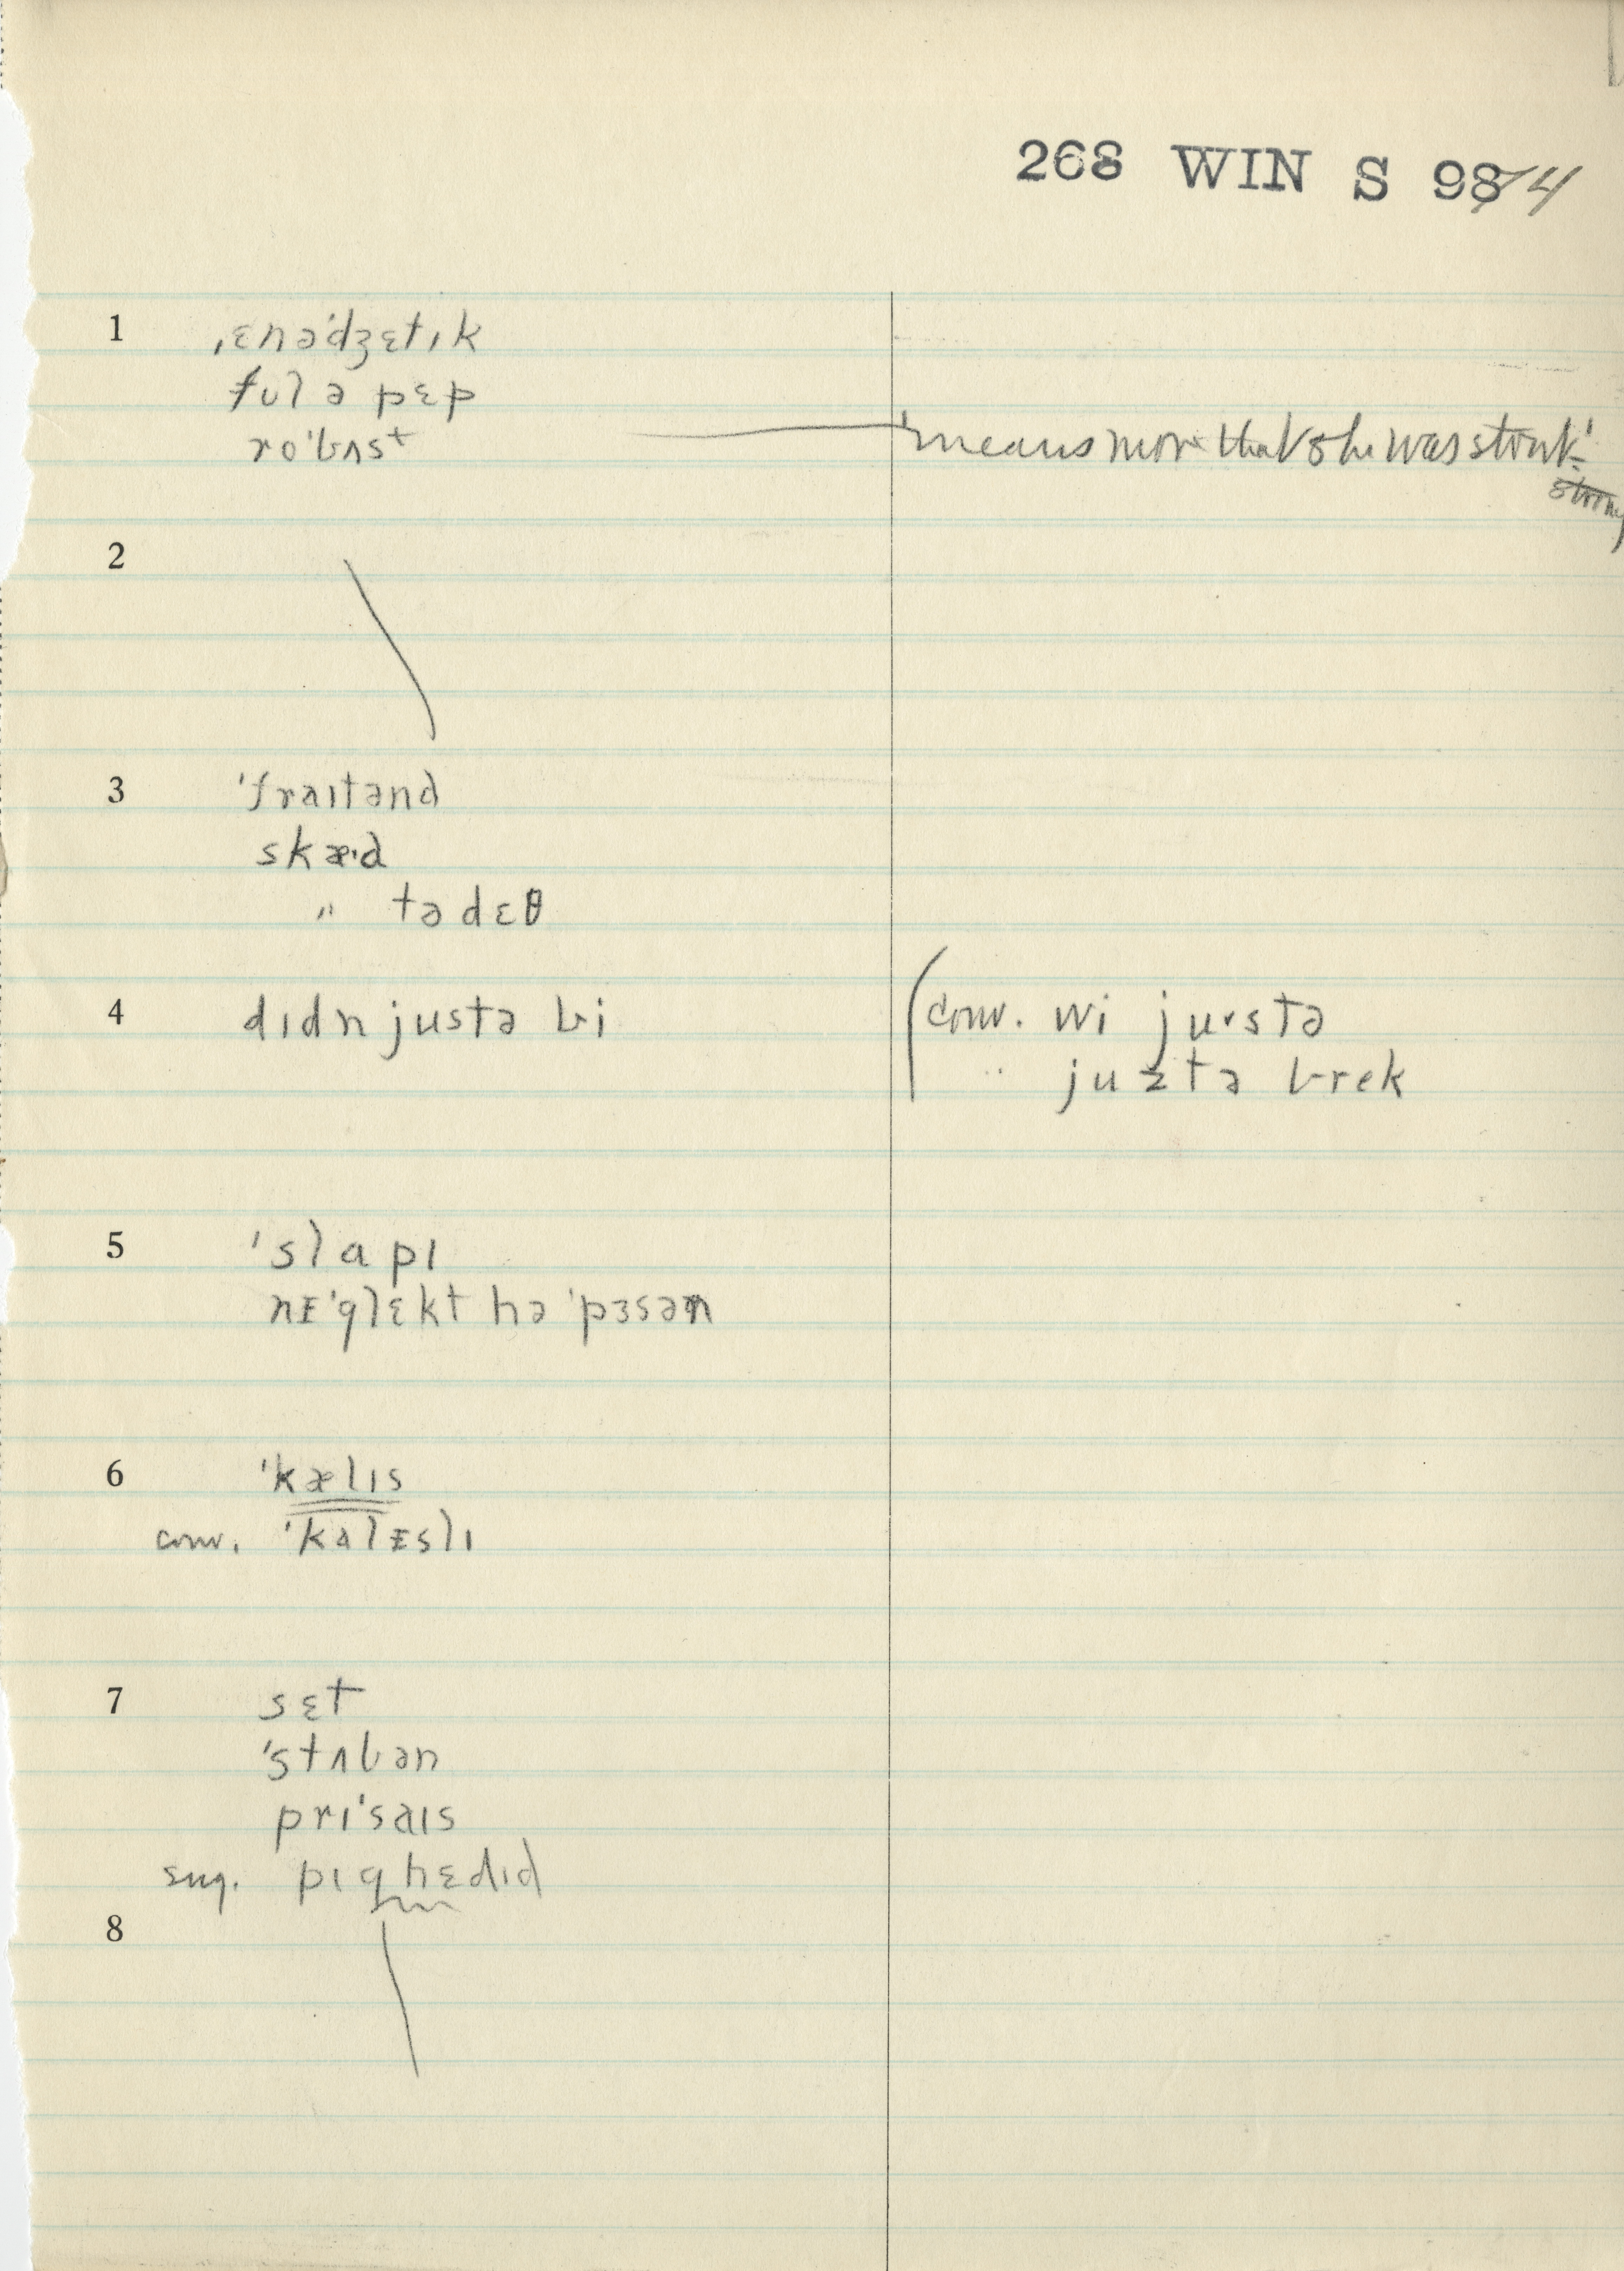 268 WIN S 9874
1 ˌɛnəˈdʒɛtɪk
fʊl ə pɛp
roˈbʌst
'means more that she was stout'
strong
2
3 ˈfraɪtənd
skæ·d
" tə dɛθ
4 dɪdn justə bi
(conv. wi ju·stə
" juztə brek
5 ˈslapɪ
nɪˈglɛkt hə ˈpɜsən
6 ˈkælɪs
conv. ˈkalɪslɪ
7 sɛt
ˈstʌbən
prɪˈsaɪs
sug. pɪg hɛdɪd
8